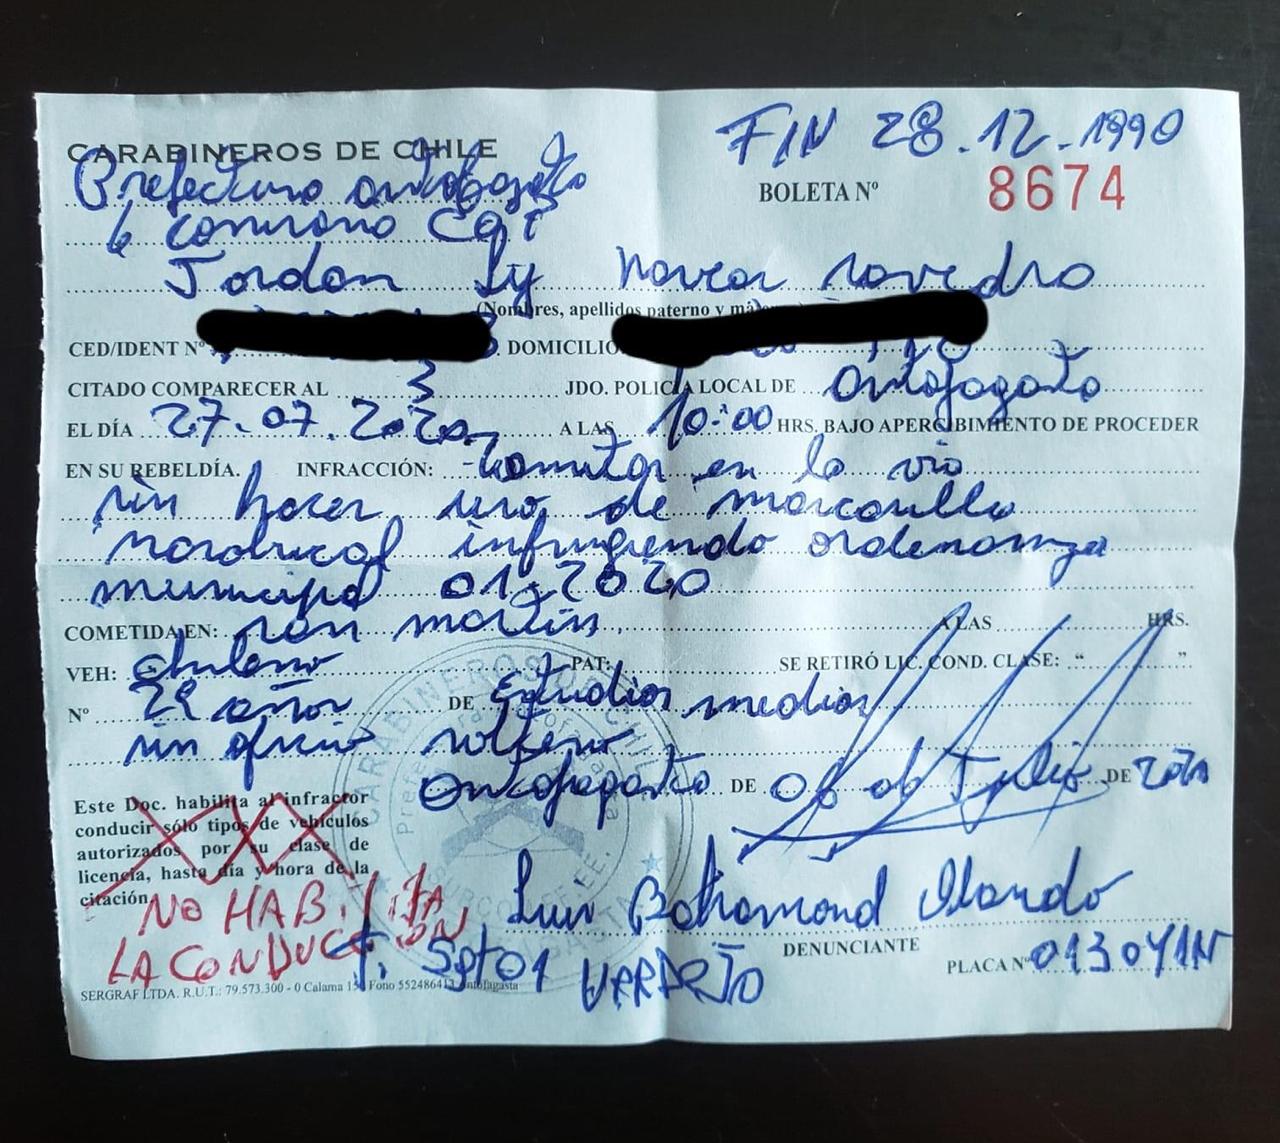 FIN 28.12.1990
CARABINEROS DE CHILE
Prefectura antofagasta
BOLETA Nº 8674
comisaria
Jordan Ly
(Nombres, apellidos paterno y
CED/IDENT Nº DOMICILIO
CITADO COMPARECER AL 3 JDO. POLICIA LOCAL DE Antofagasta
EL DÍA 27.07.2020 A LAS 10:00 HRS. BAJO APERCIBIMIENTO DE PROCEDER
EN SU REBELDÍA. INFRACCIÓN: - transitar en la via
sin hacer uso de mascarilla
infringiendo ordenanza
municipal 01-2020
COMETIDA EN: san martin. A LAS HRS.
VEH: chileno PAT: SE RETIRÓ LIC. COND. CLASE: “ ”
Nº 29 años DE Estudios medios
sin oficio soltero
antofagasta DE 06 de Julio DE 2020
Este Doc. habilita al infractor
conducir sólo tipos de vehículos
autorizados por su clase de
licencia, hasta día y hora de la
citación.
NO HABILITA
LA CONDUCCION
Luis
DENUNCIANTE
PLACA Nº
CARABINEROS DE CHILE
SERGRAF LTDA. R.U.T.: 79.573.300 - 0 Calama Fono Antofagasta